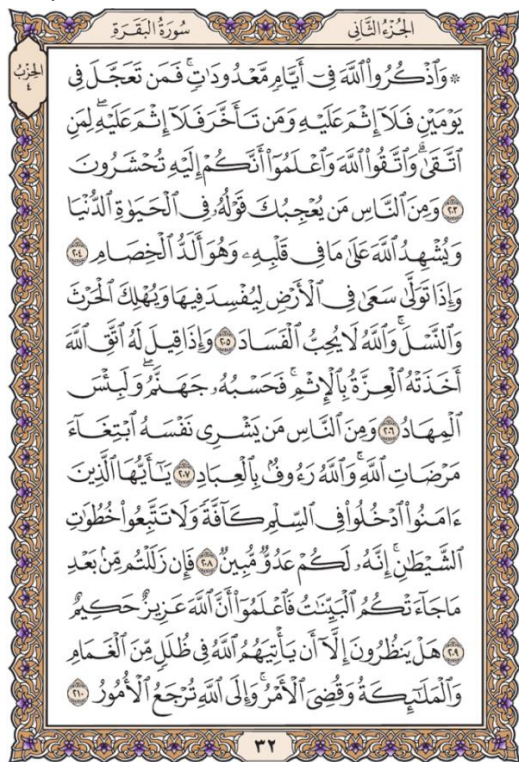 الجُزْءُ الثَّانِي
سُورَةُ البَقَرَةِ
الحِزْبُ
٤
۞ وَٱذْكُرُوا۟ ٱللَّهَ فِىٓ أَيَّامٍ مَّعْدُودَٰتٍ ۚ فَمَن تَعَجَّلَ فِى
يَوْمَيْنِ فَلَآ إِثْمَ عَلَيْهِ وَمَن تَأَخَّرَ فَلَآ إِثْمَ عَلَيْهِ ۖ لِمَنِ
ٱتَّقَىٰ ۗ وَٱتَّقُوا۟ ٱللَّهَ وَٱعْلَمُوٓا۟ أَنَّكُمْ إِلَيْهِ تُحْشَرُونَ
٢٠٣ وَمِنَ ٱلنَّاسِ مَن يُعْجِبُكَ قَوْلُهُۥ فِى ٱلْحَيَوٰةِ ٱلدُّنْيَا
وَيُشْهِدُ ٱللَّهَ عَلَىٰ مَا فِى قَلْبِهِۦ وَهُوَ أَلَدُّ ٱلْخِصَامِ ٢٠٤
وَإِذَا تَوَلَّىٰ سَعَىٰ فِى ٱلْأَرْضِ لِيُفْسِدَ فِيهَا وَيُهْلِكَ ٱلْحَرْثَ
وَٱلنَّسْلَ ۗ وَٱللَّهُ لَا يُحِبُّ ٱلْفَسَادَ ٢٠٥ وَإِذَا قِيلَ لَهُ ٱتَّقِ ٱللَّهَ
أَخَذَتْهُ ٱلْعِزَّةُ بِٱلْإِثْمِ ۚ فَحَسْبُهُۥ جَهَنَّمُ ۚ وَلَبِئْسَ
ٱلْمِهَادُ ٢٠٦ وَمِنَ ٱلنَّاسِ مَن يَشْرِى نَفْسَهُ ٱبْتِغَآءَ
مَرْضَاتِ ٱللَّهِ ۗ وَٱللَّهُ رَءُوفٌۢ بِٱلْعِبَادِ ٢٠٧ يَٰٓأَيُّهَا ٱلَّذِينَ
ءَامَنُوا۟ ٱدْخُلُوا۟ فِى ٱلسِّلْمِ كَآفَّةً وَلَا تَتَّبِعُوا۟ خُطُوَٰتِ
ٱلشَّيْطَٰنِ ۚ إِنَّهُۥ لَكُمْ عَدُوٌّ مُّبِينٌ ٢٠٨ فَإِن زَلَلْتُم مِّنۢ بَعْدِ
مَا جَآءَتْكُمُ ٱلْبَيِّنَٰتُ فَٱعْلَمُوٓا۟ أَنَّ ٱللَّهَ عَزِيزٌ حَكِيمٌ
٢٠٩ هَلْ يَنظُرُونَ إِلَّآ أَن يَأْتِيَهُمُ ٱللَّهُ فِى ظُلَلٍ مِّنَ ٱلْغَمَامِ
وَٱلْمَلَٰٓئِكَةُ وَقُضِىَ ٱلْأَمْرُ ۚ وَإِلَى ٱللَّهِ تُرْجَعُ ٱلْأُمُورُ ٢١٠
٣٢